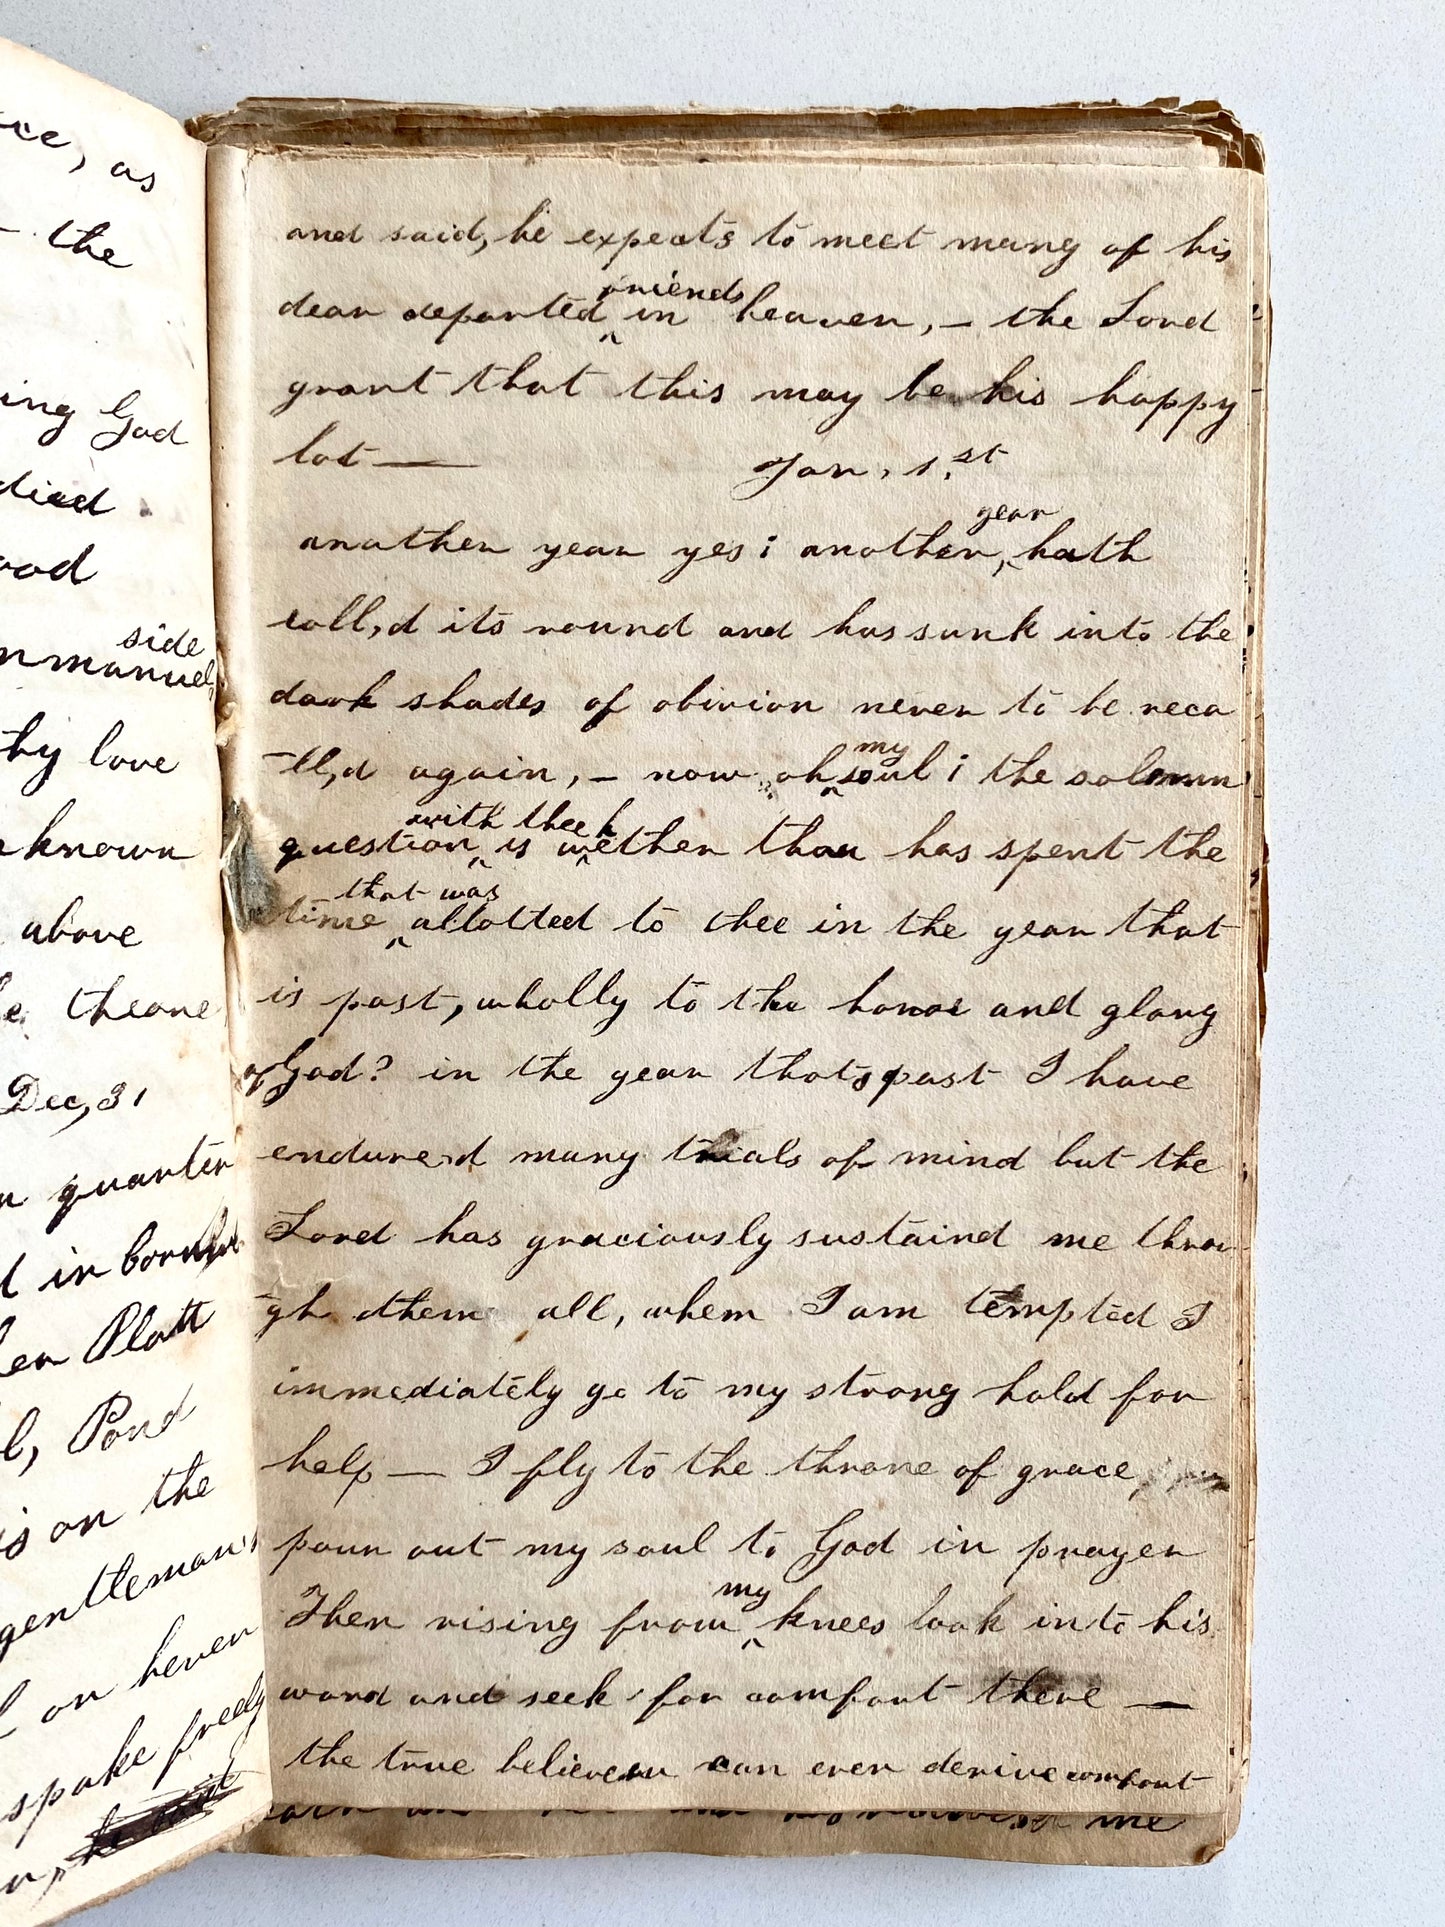 ce, as
the
ing God
died
ood
side
nmanuel,
thy love
known
above
throne
Dec, 31
quarter
in
en Platt
l, Pond
is on the
gentleman,s
on heven
spoke freely
and said, he expects to meet many of his
friends
dear departed ^ in heaven, — the Lord
grant that this may be his happy
lot — Jan, 1,st
year
another year yes ; another, ^ hath
roll,d its round and has sunk into the
dark shades of oblivion never to be reca
my
-ll,d again, — now oh ^ soul ; the solemn
with thee h
question ^ is w^ether thou has spent the
that was
time ^ allotted to thee in the year that
is past, wholly to the honor and glory
of God? in the year thats past I have
endure,d many trials of mind but the
Lord has graciously sustaind me throu-
-gh them all, when I am tempted I
immediately go to my strong hold for
help — I fly to the throne of grace,
pour out my soul to God in prayer
my
Then rising from ^ knees look into his
word and seek for comfort there —
the true believer can ever derive comfort
me